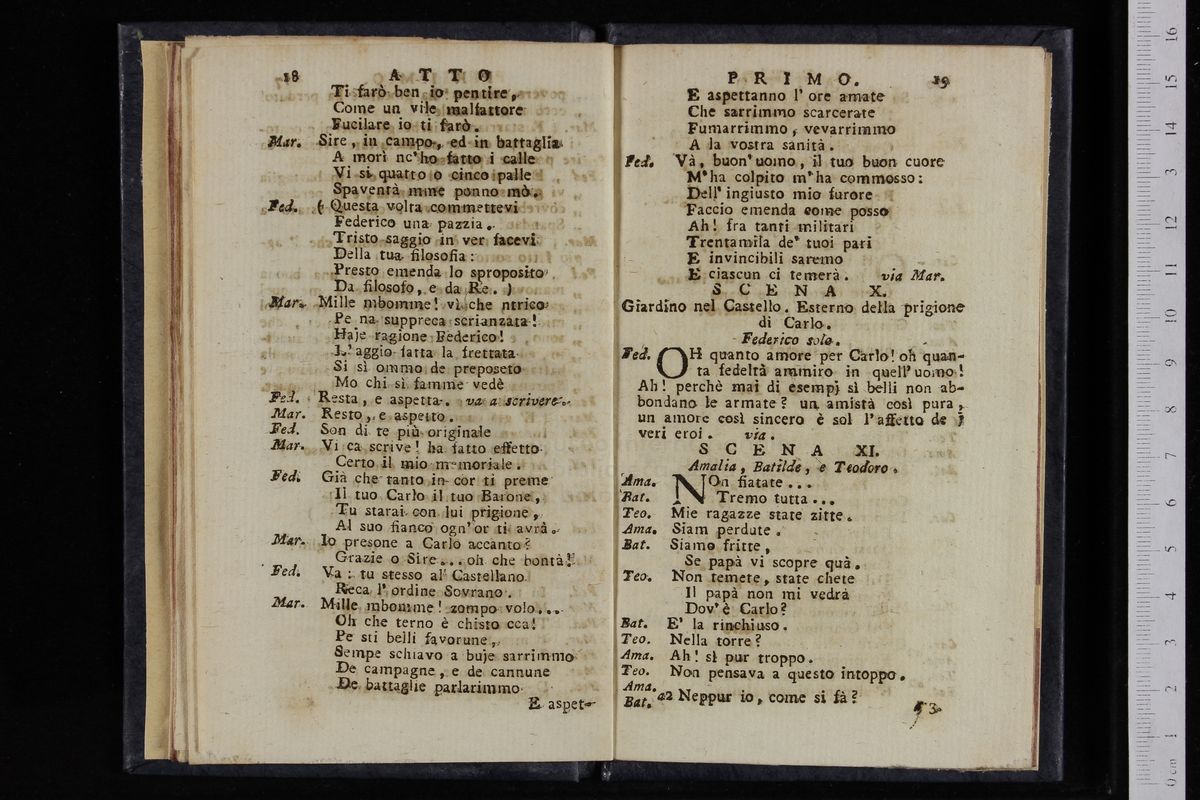 18 ATTO
Ti farò ben io pentire,
Come un vile malfattore
Fucilare io ti farò.
Mar. Sire, in campo, ed in battaglia
A morì nc'ho fatto i calle
Vi sì quatto o cinco palle
Spaventà mme ponno mò.
Fed. ( Questa volta commettevi
Federico una pazzia.
Tristo saggio in ver facevi
Della tua filosofia:
Presto emenda lo sproposito
Da filosofo, e da Re. )
Mar. Mille mbomme! vì che ntrico
Pe na suppreca scrianzata!
Haje ragione Federico!
L'aggio fatta la frettata
Si sì ommo de preposeto
Mo chi sì famme vedè
Fed. Resta, e aspetta. va a scrivere.
Mar. Resto, e aspetto.
Fed. Son di te più originale
Mar. Vi ca scrive! ha fatto effetto
Certo il mio memoriale.
Fed. Già che tanto in cor ti preme
Il tuo Carlo il tuo Barone,
Tu starai con lui prigione,
Al suo fianco ogn'or ti avrà.
Mar. Io presone a Carlo accanto?
Grazie o Sire... oh che bontà!
Fed. Va: tu stesso al Castellano
Reca l'ordine Sovrano.
Mar. Mille mbomme! zompo volo...
Oh che terno è chisto cca!
Pe sti belli favorune,
Sempe schiavo a buje sarrimmo
De campagne, e de cannune
De battaglie parlarimmo
E aspet-
PRIMO. 19
E aspettanno l'ore amate
Che sarrimmo scarcerate
Fumarrimmo, vevarrimmo
A la vostra sanità.
Fed. Và, buon'uomo, il tuo buon cuore
M'ha colpito m'ha commosso:
Dell'ingiusto mio furore
Faccio emenda come posso
Ah! fra tanti militari
Trentamila de' tuoi pari
E invincibili saremo
E ciascun ci temerà. via Mar.
SCENA X.
Giardino nel Castello. Esterno della prigione
di Carlo.
Federico solo.
Fed. OH quanto amore per Carlo! oh quan-
ta fedeltà ammiro in quell'uomo!
Ah! perchè mai di esempj sì belli non ab-
bondano le armate? un amistà così pura,
un amore così sincero è sol l'affetto de'
veri eroi. via.
SCENA XI.
Amalia, Batilde, e Teodoro.
Ama. NOn fiatate...
Bat. Tremo tutta...
Teo. Mie ragazze state zitte.
Ama. Siam perdute.
Bat. Siamo fritte,
Se papà vi scopre quà.
Teo. Non temete, state chete
Il papà non mi vedrà
Dov'è Carlo?
Bat. E' la rinchiuso.
Teo. Nella torre?
Ama. Ah! sì pur troppo.
Teo. Non pensava a questo intoppo.
Ama.
Bat. a2 Neppur io, come si fà?